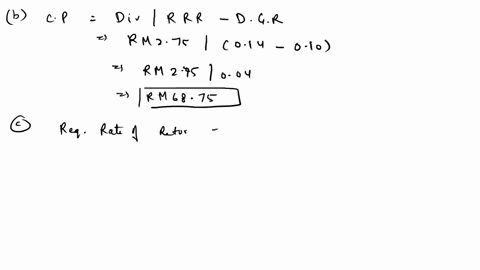 (b) C.P = Div | RRR - D.G.R
=) RM2.75 | (0.14 - 0.10)
=) RM2.75 | 0.04
=) RM68.75
(c) Req. Rate of Retor -